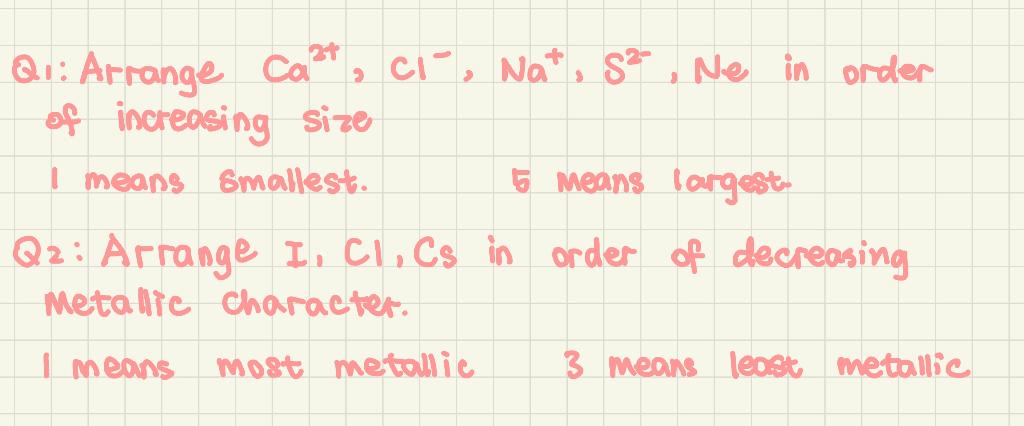 Q1: Arrange Ca²⁺, Cl⁻, Na⁺, S²⁻, Ne in order
of increasing size
1 means smallest. 5 means largest
Q2: Arrange I, Cl, Cs in order of decreasing
Metallic Character.
1 means most metallic 3 means least metallic